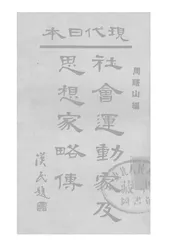 現代日本
周曙山編
社會運動家及
思想家略傳
漢民題